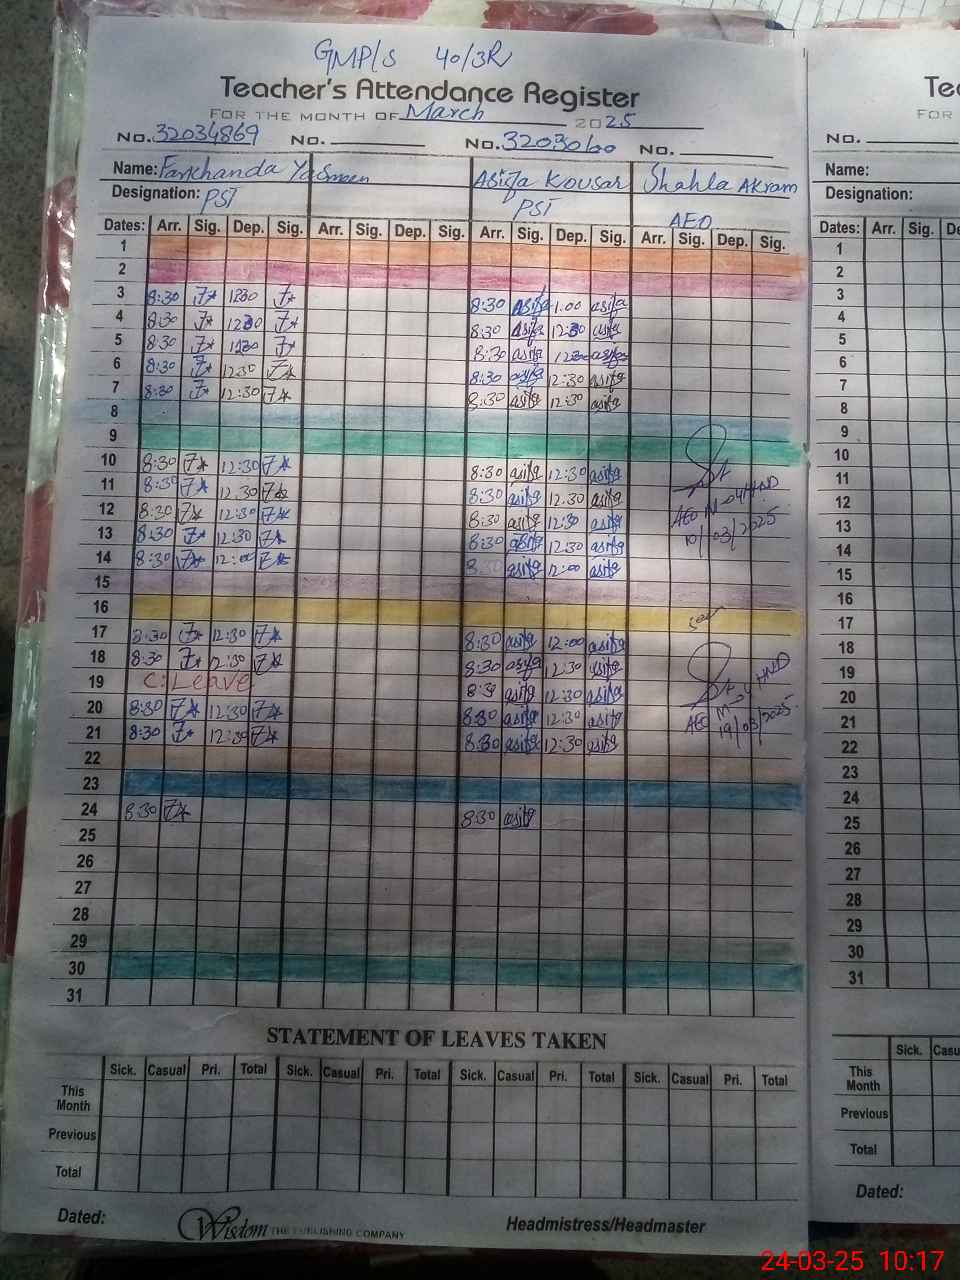 GMP/S 40/3R
Teacher's Attendance Register
FOR THE MONTH OF March 2025
No. 32034869 No. No. 3203060 No.
Name: Farkhanda Yasmeen Asifa Kousar Shahla Akram
Designation: PST PST AEO
Dates: Arr. Sig. Dep. Sig. Arr. Sig. Dep. Sig. Arr. Sig. Dep. Sig. Arr. Sig. Dep. Sig.
1
2
3 8:30 1230 8:30 asifa 1.00 asifa
4 8:30 1230 8:30 asifa 12:30 asifa
5 8:30 1230 8:30 asifa 1230 asifa
6 8:30 12:30 8:30 asifa 12:30 asifa
7 8:30 12:30 8:30 asifa 12:30 asifa
8
9
10 8:30 12:30 8:30 asifa 12:30 asifa
11 8:30 12.30 8:30 asifa 12.30 asifa
12 8:30 12:30 8:30 asifa 12:30 asifa AEO
13 8:30 12:30 8:30 asifa 12:30 asifa 10/03/2025
14 8:30 12:00 8:30 asifa 12:00 asifa
15
16
17 8:30 12:30 8:30 asifa 12:00 asifa
18 8:30 12:30 8:30 asifa 12:30 asifa
19 C:Leave 8:30 asifa 12:30 asifa
20 8:30 12:30 8:30 asifa 12:30 asifa AEO
21 8:30 12:30 8:30 asifa 12:30 asifa 19/03/2025
22
23
24 8:30 8:30 asifa
25
26
27
28
29
30
31
STATEMENT OF LEAVES TAKEN
Sick. Casual Pri. Total Sick. Casual Pri. Total Sick. Casual Pri. Total Sick. Casual Pri. Total
This
Month
Previous
Total
Dated: Wisdom THE PUBLISHING COMPANY Headmistress/Headmaster
Tea
FOR
No.
Name:
Designation:
Dates: Arr. Sig. De
1
2
3
4
5
6
7
8
9
10
11
12
13
14
15
16
17
18
19
20
21
22
23
24
25
26
27
28
29
30
31
Sick. Casu
This
Month
Previous
Total
Dated:
24-03-25 10:17